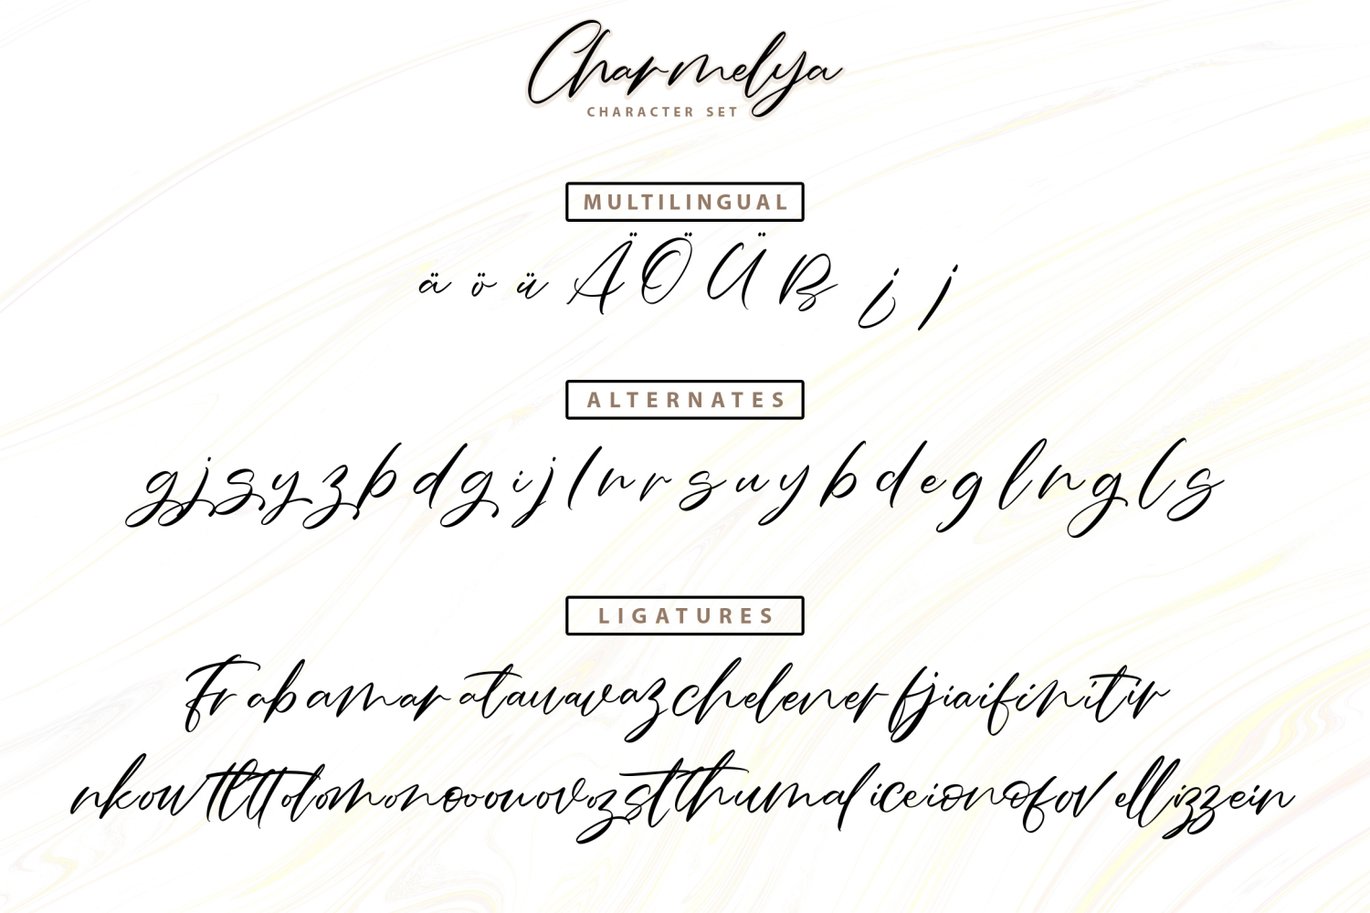 Charmelya
CHARACTER SET
MULTILINGUAL
ä ö ü Ä Ö Ü ß ¿ j
ALTERNATES
g j s y z b d g i j l n r s u y b d e g l n g l s
LIGATURES
Fr ab am ar at au av az ch el en er fj ia if in it ir
nk ow tl tt ol om on oo ou ov oz st th um al ic ei on of ov ell izz ein